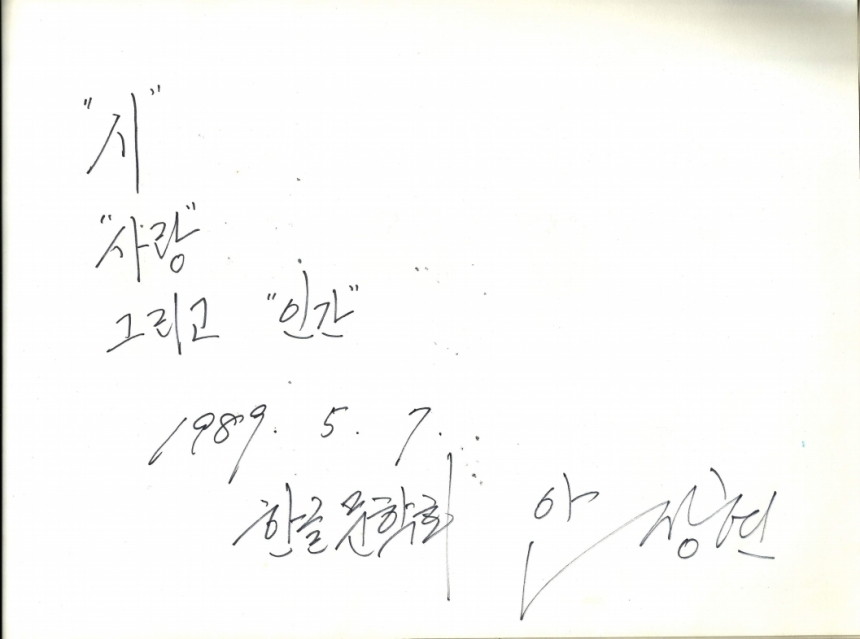 "시"
"사랑"
그리고 "인간"
1989. 5. 7.
한글문학회 안 장현